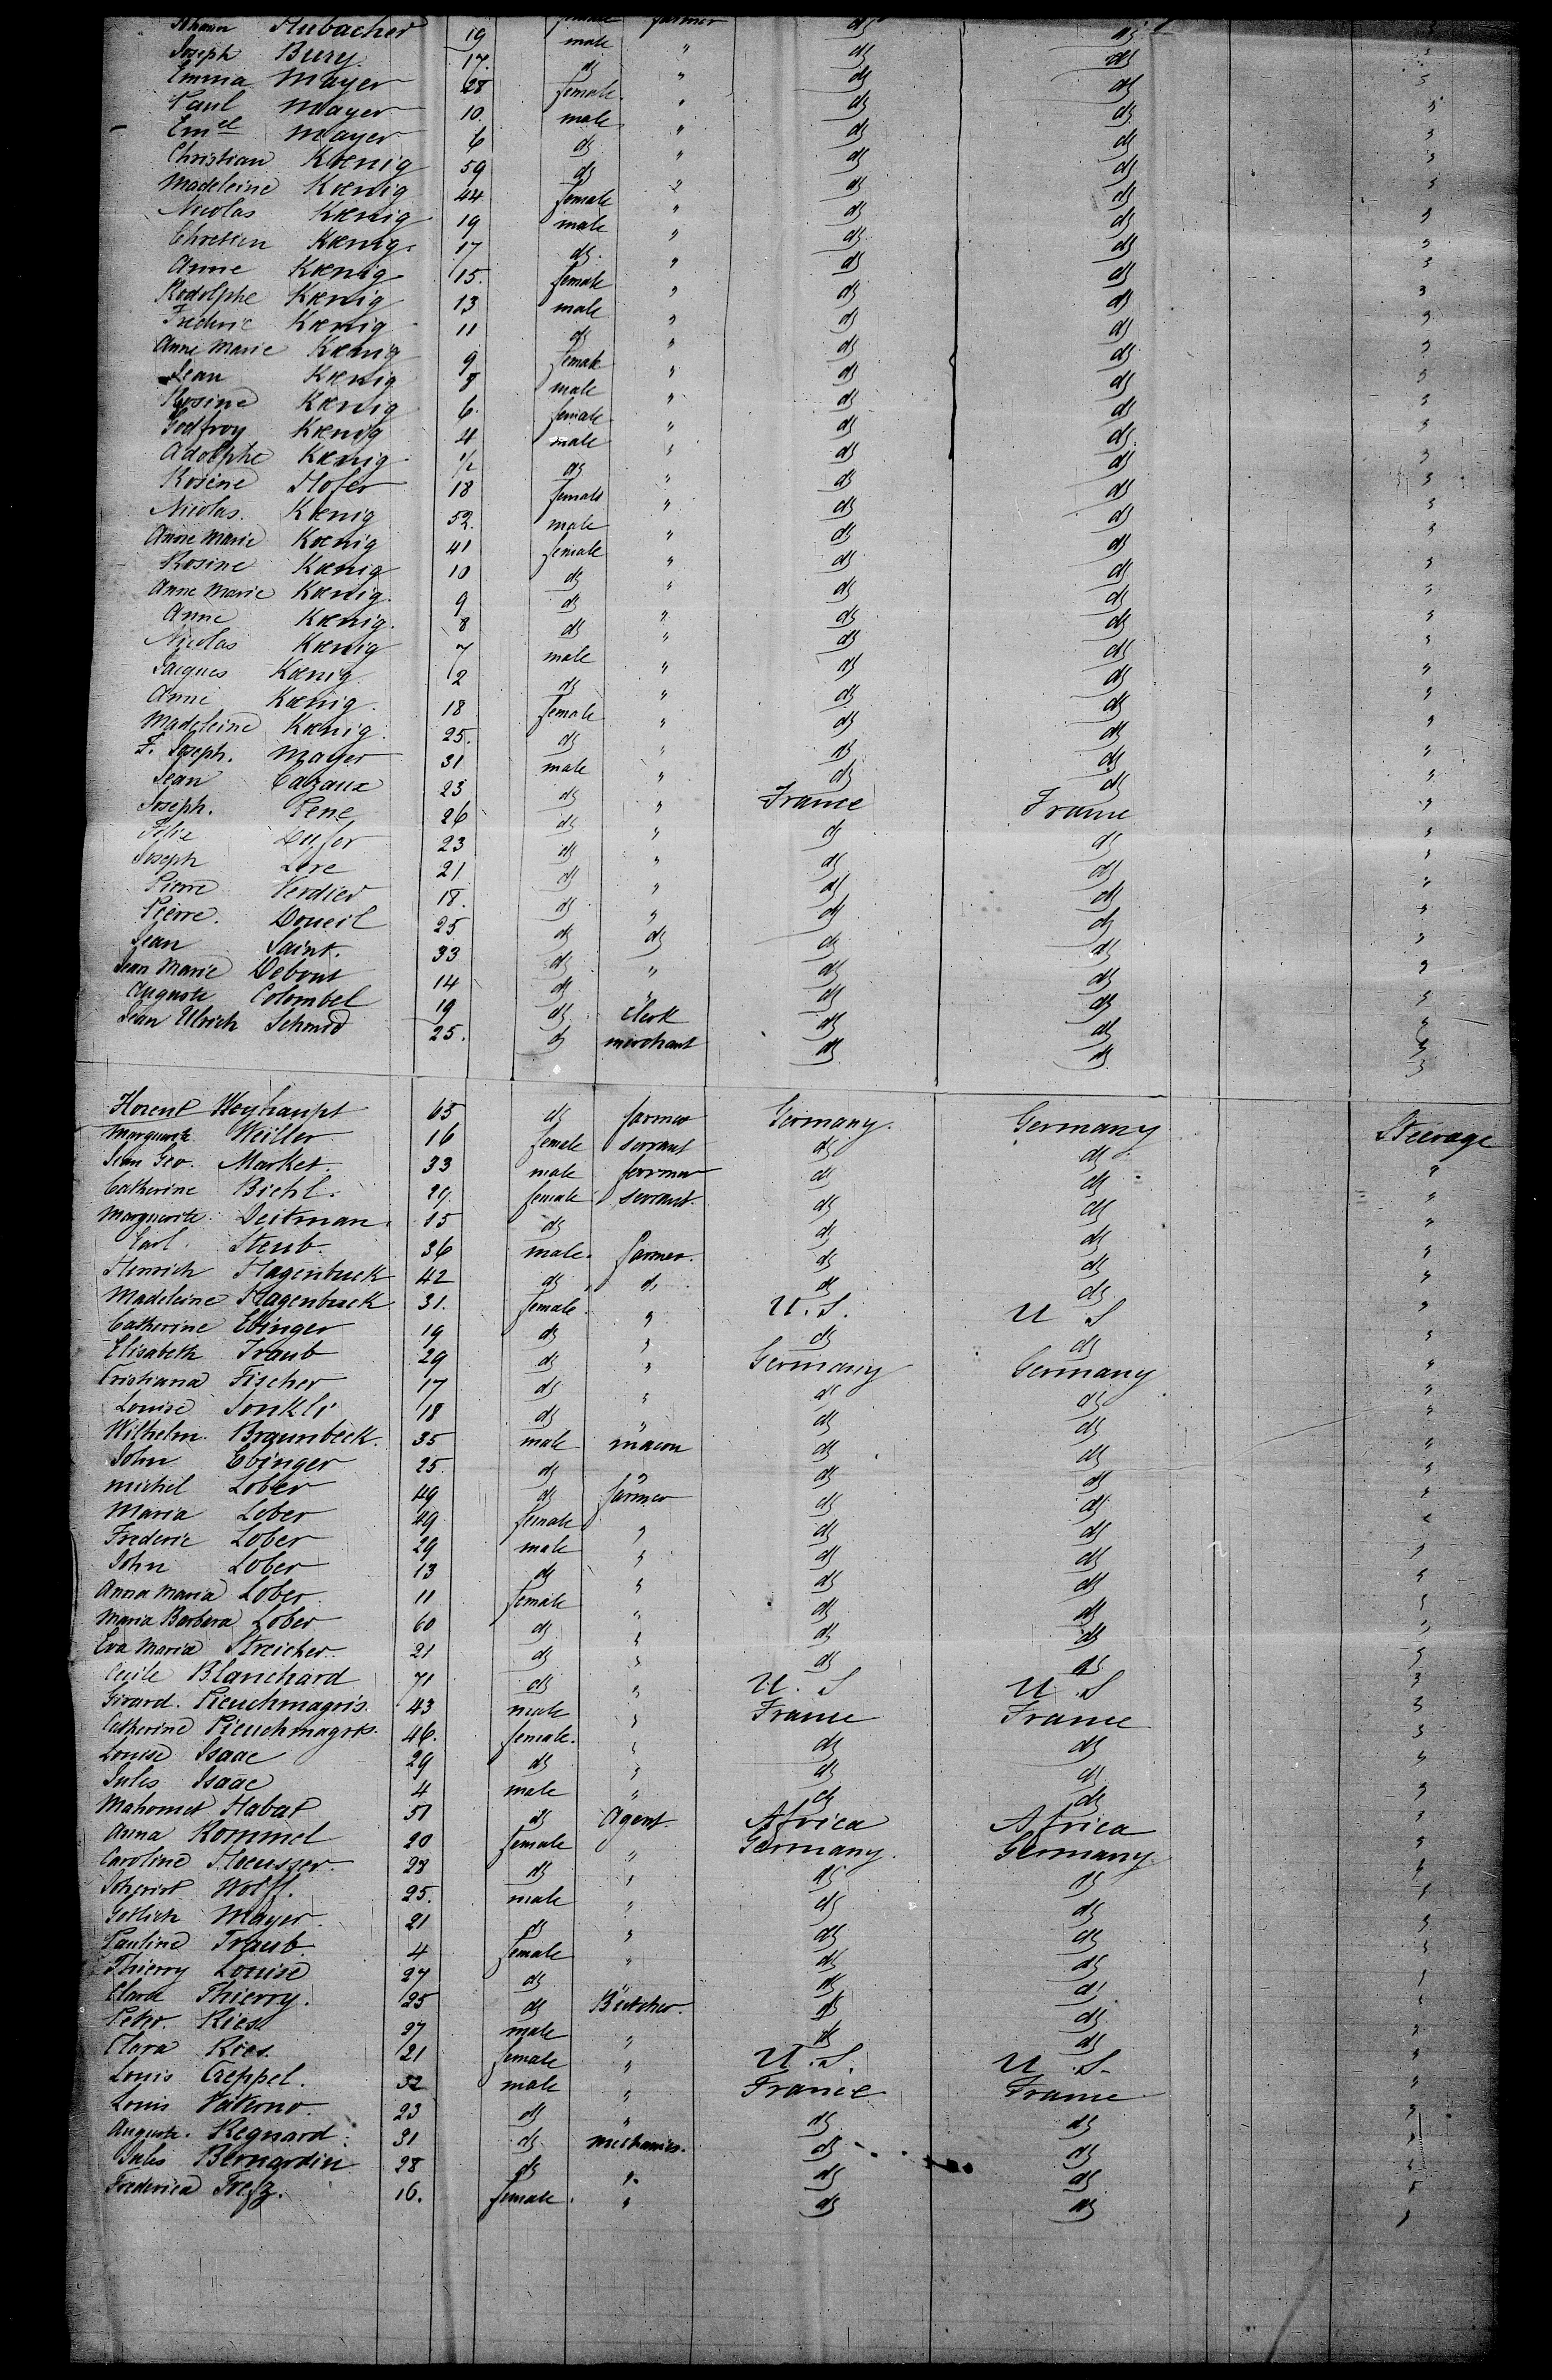 Johann Hubacher 19 male farmer do do "
Joseph Bury 17. do " do do "
Emma Mayer 28 female " do do "
Paul Mayer 10. male " do do "
Emel Mayer 6 do " do do "
Christian Kœnig 59 do " do do "
Madeleine Kœnig 44 female " do do "
Nicolas Kœnig 19 male " do do "
Chretien Kœnig 17 do " do do "
Anne Kœnig 15. female " do do "
Rodolphe Kœnig 13 male " do do "
Frederic Kœnig 11 do " do do "
Anne Marie Kœnig 9 female " do do "
Jean Kœnig 8 male " do do "
Rosine Kœnig 6. female " do do "
Godfroy Kœnig 4 male " do do "
Adolphe Kœnig 1/2 do " do do "
Rosine Hofer 18 female " do do "
Nicolas Kœnig 52. male " do do "
Anne Marie Kœnig 41 female " do do "
Rosine Kœnig 10 do " do do "
Anne Marie Kœnig. 9 do " do do "
Anne Kœnig. 8 do " do do "
Nicolas Kœnig 7 male " do do "
Jacques Kœnig 2 do " do do "
Anne Kœnig. 18 female " do do "
Madeleine Kœnig 25. do " do do "
F. Joseph. Mayer 31 male " do do "
Jean Cazaux 23 do " France France "
Joseph. Pene 26 do " do do "
Felix Dufor 23 do " do do "
Joseph Lere 21 do " do do "
Pierre Verdier 18. do " do do "
Pierre. Doueil 25 do do do do "
Jean Saint. 33 do " do do "
Jean Marie Debout 14 do " do do "
Auguste Colombel 19 do clerk do do "
Jean Ulrich Schmid 25. do merchant do do "
Florent Weyhaupt 65 do farmer Germany. Germany Steerage
Marguerite Weiller 16 female servant do do "
Jean Geo. Market. 33 male farmer do do "
Catherine Biehl. 29. female servant. do do "
Marguerite Deitman. 15 do do do "
Carl. Steub. 36 male. farmer. do do "
Henrich Hagenbuck 42 do do do do "
Madeleine Hagenbuck 31. female. " U. S. U S "
Catherine Ebinger 19 do " do do "
Elisabeth Traub 29 do " Germany Germany "
Cristiana Fischer 17 do " do do "
Louise 18 do " do do "
Wilhelm Braunbeck. 35 male macon do do "
John Ebinger 25. do " do do "
Michel Lober 49 do farmer do do "
Maria Lober 49. female " do do "
Frederic Lober 29 male " do do "
John Lober 13 do " do do "
Anna Maria Lober. 11 female " do do "
Maria Barbara Lober 60 do " do do "
Eva Maria Streicher 21 do " do do "
Cecile Blanchard 71 do " U. S U. S "
Girard. Pieuchmagris. 43 male " France France "
Catherine Pieuchmagris. 46. female. " do do "
Louise Isaac 29 do " do do "
Jules Isaac 4 male " do do "
Mahomet Habat 51 do Agent. Africa Africa "
Anna Rommel 20 female " Germany. Germany "
Caroline Haeusser. 23 do " do do "
Wolff. 25. male " do do "
Gotlieb Mayer. 21 do " do do "
Pauline Traub 4 female " do do "
Thierry Louise 27 do " do do "
Clara Thierry. 25 do Butcher. do do "
Peter. Ries 27 male " do do "
Clara Ries. 21 female " U. S. U. S. "
Louis Creppel. 32 male " France France "
Louis 23 do " do do "
Auguste. Regnard. 31 do mechanics. do do "
Jules Bernardin 28 do " do do "
Frederica Trefz. 16. female. " do do "